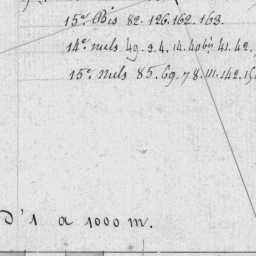 15e Bis 82. 126. 162. 163.
14e nuls 49. 2. 4. 14. 40bis 41. 42.
15e nuls 85. 69. 78. 111. 142.
D'1 a 1000 m.